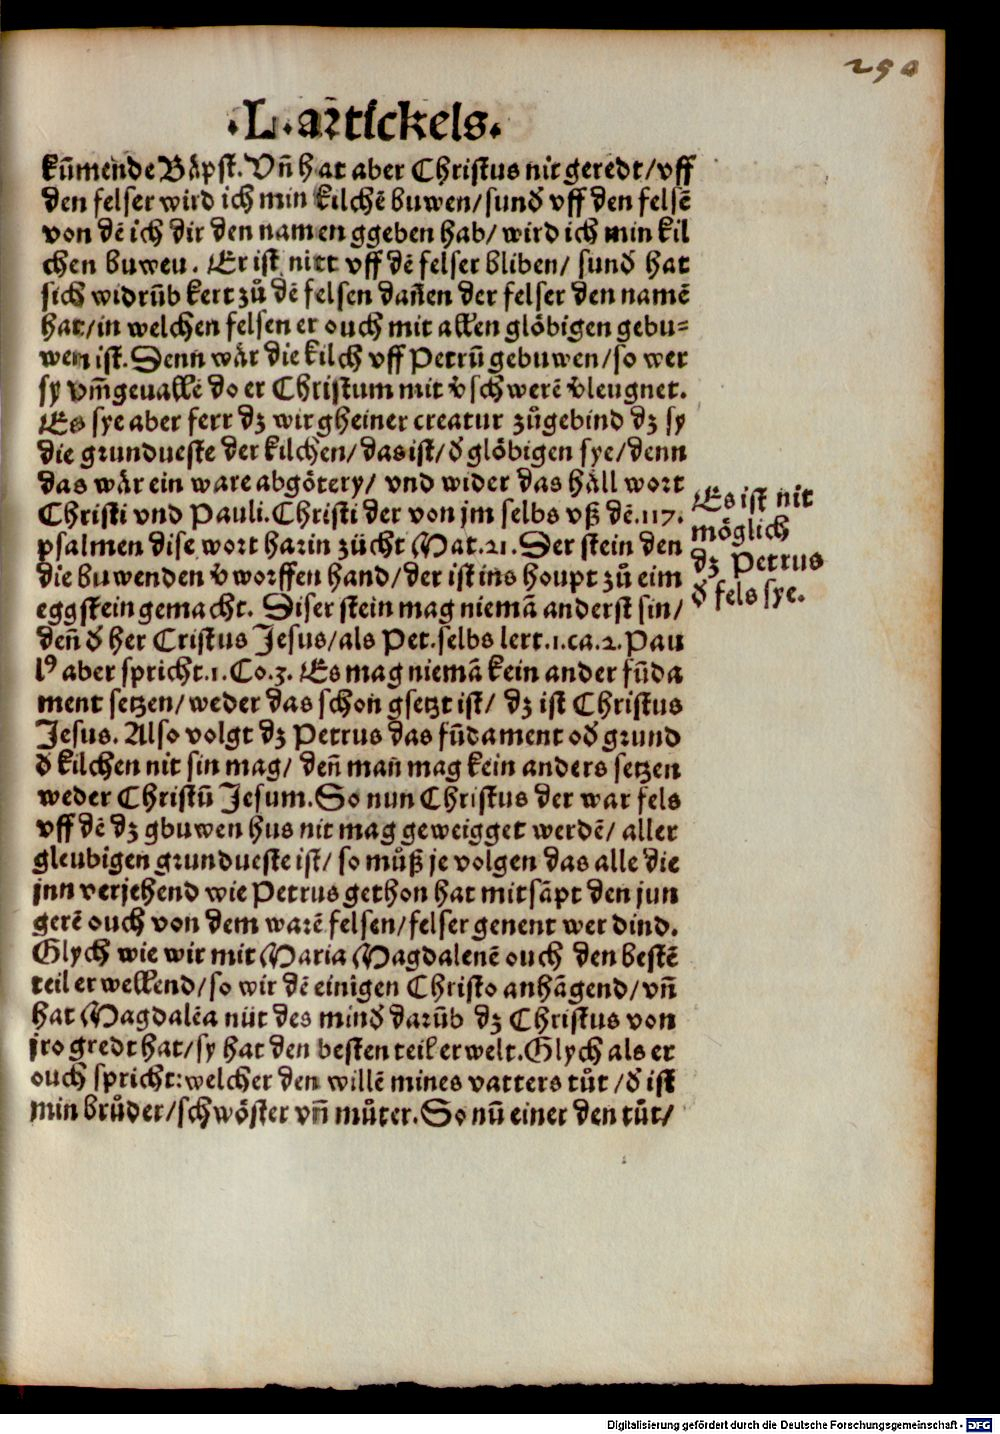 290
.L.artickels.
kūmende Bäpst. Vn̄ hat aber Christus nit geredt/vff
den felser wird ich min kilchē buwen/sund vff den felsē
von dē ich dir den namen ggeben hab/ wird ich min kil
chen buweu. Er ist nitt vff dē felser bliben/ sund hat
sich widrūb kert zů dē felsen dan̄en der felser den namē
hat/in welchen felsen er ouch mit allen glöbigen gebu-
wen ist. Denn wär die kilch vff Petrū gebuwen/so wer
sy vm̄geuallē do er Christum mit v̄schwerē v̄leugnet.
Es sye aber ferr dz wir gheiner creatur zůgebind dz sy
die grundueste der kilchen/das ist/ d glöbigen sye/denn
das wär ein ware abgötery/ vnd wider das häll wort
Christi vnd Pauli. Christi der von jm selbs vß dē .117.
psalmen dise wort harin zücht Mat.21. Der stein den
die buwenden v̄worffen hand/der ist ins houpt zů eim
eggstein gemacht. Diser stein mag niemā anderst sin/
den̄ d her Cristus Jesus/als Pet. selbs lert.1.ca.2. Pau
lꝰ aber spricht.1.Co.3. Es mag niemā kein ander fūda
ment setzen/weder das schon gsetzt ist/ dz ist Christus
Jesus. Also volgt dz Petrus das fūdament od grund
d kilchen nit sin mag/ den̄ man̄ mag kein anders setzen
weder Christū Jesum. So nun Christus der war fels
vff dē dz gbuwen hus nit mag geweigget werdē/ aller
gleubigen grundueste ist/ so můß je volgen das alle die
jnn verjehend wie Petrus gethon hat mitsāpt den jun
gerē ouch von dem warē felsen/felser genent werdind.
Glych wie wir mit Maria Magdalenē ouch den bestē
teil erwellend/so wir dē einigen Christo anhāgend/vn̄
hat Magdalēa nüt des mind darūb dz Christus von
jro gredt hat/sy hat den besten teil erwelt. Glych als er
ouch spricht: welcher den willē mines vatters tůt /d ist
min brůder/schwöster vn̄ můter. So nū einer den tůt/
Es ist nit
möglich
dz Petrus
d fels sye.
Digitalisierung gefördert durch die Deutsche Forschungsgemeinschaft - DFG